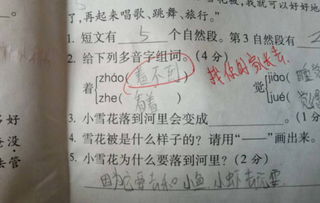 了,再起来唱歌、跳舞、旅行。"
1. 短文有 5 个自然段。第3自然段有
2. 给下列多音字组词。(4分)
找你的家长去
着 zháo( 着不到 ) 觉 jiào( 睡
zhe( 看着 ) jué(
3. 小雪花落到河里会变成 。(1
4. 雪花被是什么样子的?请用"——"画出来。
5. 小雪花为什么要落到河里?(2分)
因为它要去和小鱼小虾去玩耍
多好
爸没
去管